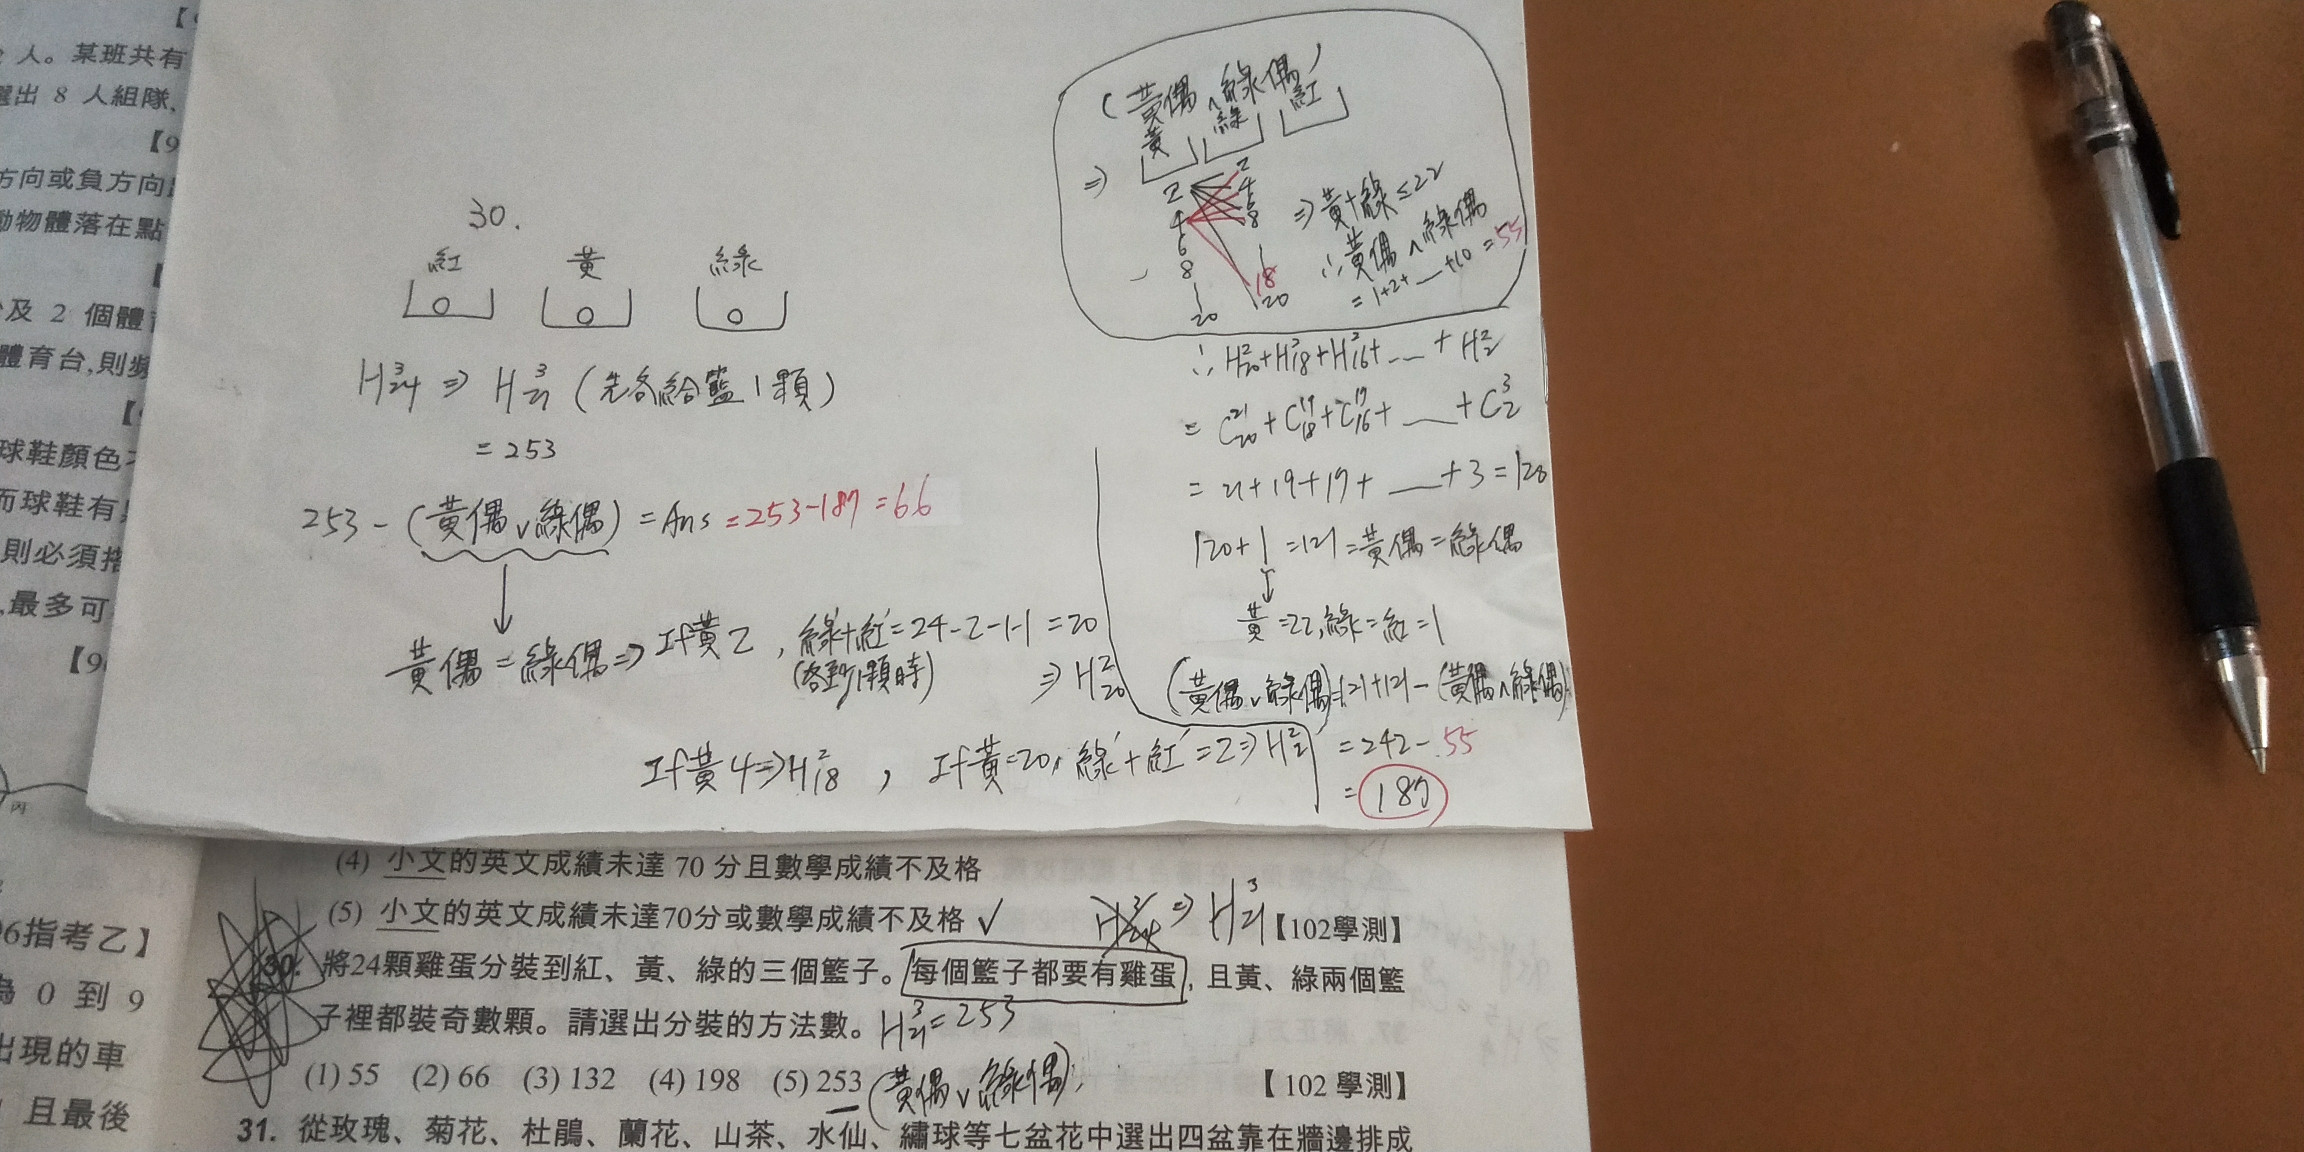 【
人。某班共有
選出 8 人組隊、
【9
方向或負方向
動物體落在點
【
及 2 個體
體育台,則頻
【
球鞋顏色
而球鞋有
則必須
,最多可
【9
丙
6指考乙】
為 0 到 9
出現的車
且最後
30.
紅 黃 綠
0 0 0
H³₂₄ ⇒ H³₂₁ (先各給籃1顆)
= 253
253 - (黃偶∨綠偶) = Ans = 253-187 = 66
黃偶 = 綠偶 ⇒ If黃2, 綠'+紅' = 24-2-1-1 = 20
(各至少1顆時) ⇒ H²₂₀
If黃4 ⇒ H²₁₈ , If黃=20, 綠'+紅' = 2 ⇒ H²₂
(黃偶∧綠偶)
黃 綠 紅
⇒
2 4 6 8 20
2 4 6 8 18 20
⇒ 黃+綠 ≤ 22
∴黃偶∧綠偶
= 1+2+ — +10 = 55
∴ H²₂₀+H²₁₈+H²₁₆+ — + H²₂
= C²¹₂₀ + C¹⁹₁₈ + C¹⁷₁₆ + — + C³₂
= 21+19+17+ — +3 = 120
120+1 = 121 = 黃偶 = 綠偶
黃=22,綠=紅=1
(黃偶∨綠偶)=121+121-(黃偶∧綠偶)
= 242-55
= 187
(4) 小文的英文成績未達 70 分且數學成績不及格
(5) 小文的英文成績未達70分或數學成績不及格 ✓ H³₂₄ ⇒ H³₂₁ 【102學測】
30. 將24顆雞蛋分裝到紅、黃、綠的三個籃子。每個籃子都要有雞蛋,且黃、綠兩個籃
子裡都裝奇數顆。請選出分裝的方法數。 H³₂₁=253
(1) 55 (2) 66 (3) 132 (4) 198 (5) 253 (黃偶∨綠偶) 【102 學測】
31. 從玫瑰、菊花、杜鵑、蘭花、山茶、水仙、繡球等七盆花中選出四盆靠在牆邊排成